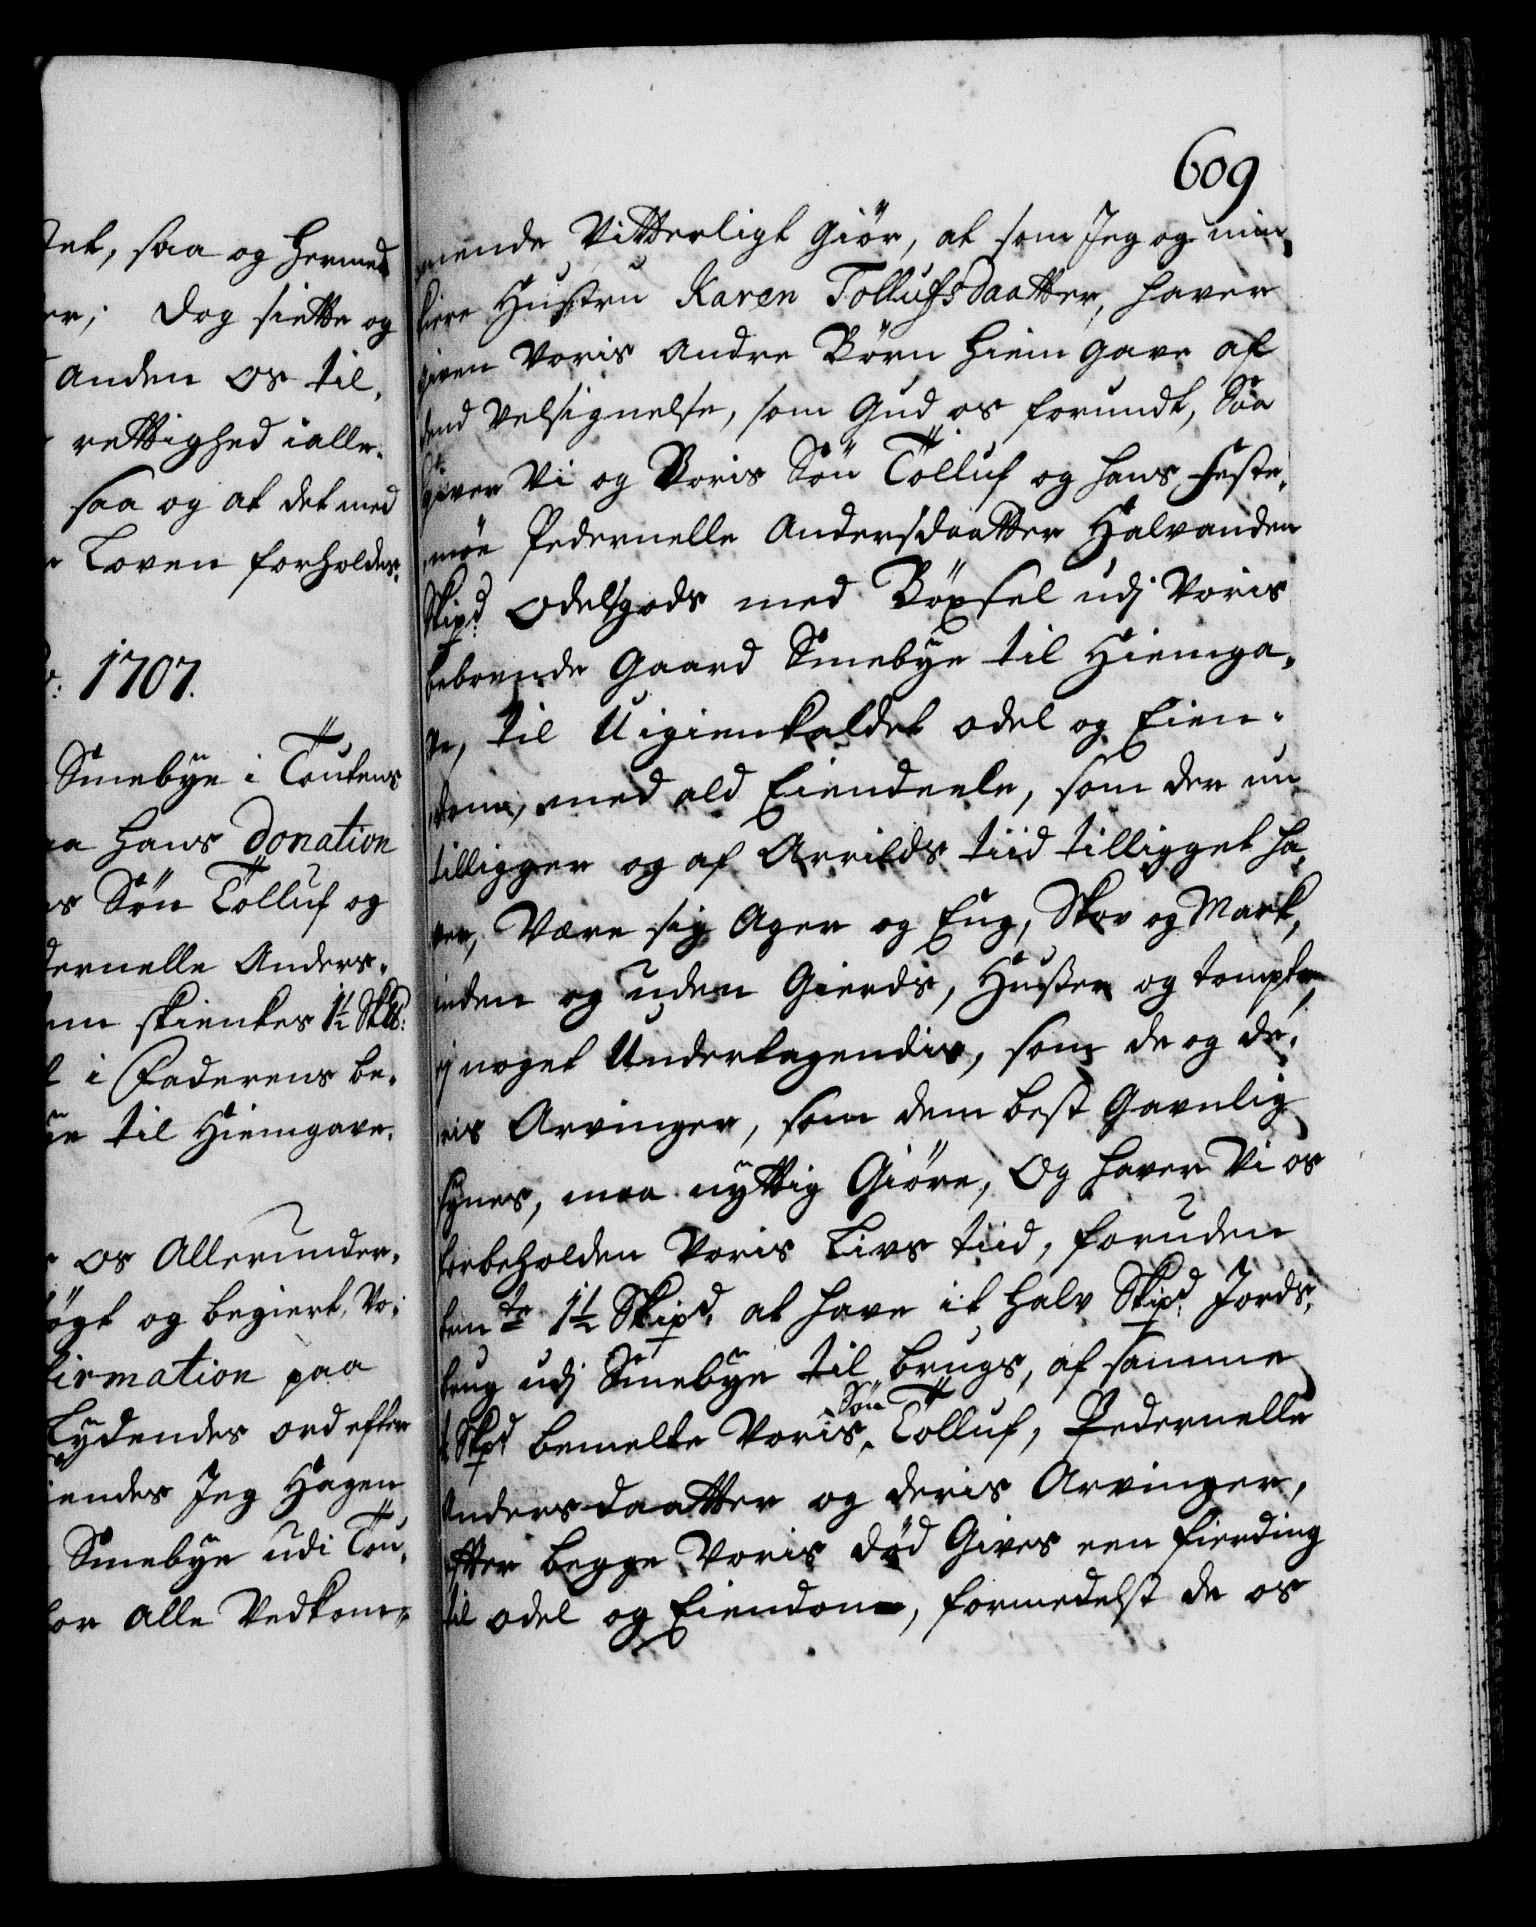 tet, saa og hermed
er; dog siette og
Anden os til,
rettighed i alle-
saa og at det med
Loven forholdes.
1707.
Smebye i Toutens
hans Donation
Søn Tolluf og
dernelle Anders-
skienkes 1½ Sk℔:
i Faderens be-
til Hiemgave.
os Allerunder-
søgt og begiert, Vo-
firmation paa
Lydendes ord efter
iendes Jeg Hagen
Smebye udi Tou-
for alle Vedkom-
609
mende Vitterligt giør, at som Jeg og min
kiere Hustru Karen Tollufsdaatter, haver
given Voris Andre Børn hiemgave af
dend Velsignelse, som Gud os forundt, Saa
giver Vi og Voris Søn Tolluf og hans Feste-
møe Pedernelle Andersdaatter Halvanden
Skipd Odelsgods med Bøxsel udj Voris
beboende Gaard Smebye til Hiemga-
ve, til Uigienkaldet odel og Eien-
dom, med ald Eiendeele, som der nu
tilligger og af Arrilds tiid tilligget ha-
ver, Være sig Ager og Eng, Skov og Mark,
inden og uden Gierds, Huser og tompter,
ej noget Undertagendis, som de og de-
ris Arvinger, som dem best Gavnlig
synes, maa nyttig Giøre, Og haver Vi os
forbeholden Voris Livs tiid, foruden
1½ Skipd, at have it halv Skipd Jords-
brug udj Smebye til brugs, af samme
½ Skpd bemelte Voris Søn Tolluf, Pedernelle
Andersdaatter og deris Arvinger,
efter begge Voris død Gives een fierding
til odel og Eiendom, formedelst de os